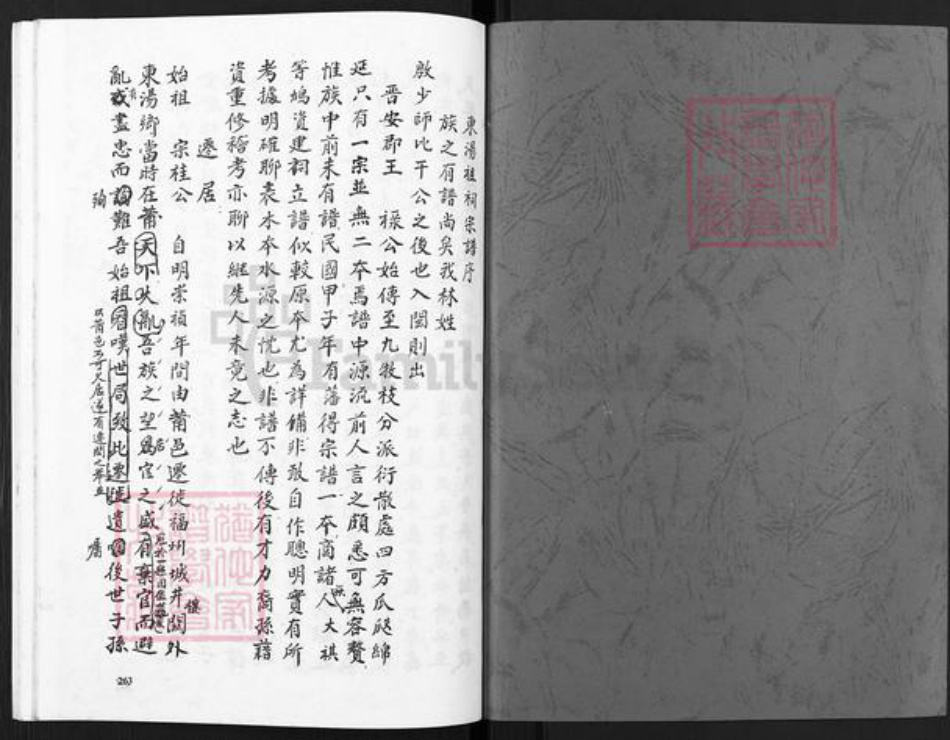 東湯祖祠宗譜序
族之有譜尚矣我林姓
啟少師比干公之後也入閩則出
晋安郡王 祿公始傳至九牧枝分派衍散處四方瓜瓞綿
延只有一宗並無二夲焉譜中源流前人言之頗悉可無容贅
惟族中前未有譜民國甲子年有藩得宗譜一夲商諸人大祺
等鳩資建祠立譜似較原夲尤為詳備非敢自作聰明實有所
考據明確聊表木夲水源之忱也非譜不傳後有才力裔孫藉
資重修稽考亦聊以繼先人未竟之志也
遷居
始祖 宗桂公 自明崇禎年間由莆邑遷徙福州城井関外
樓
東湯鄉當時在莆天下大亂吾族之望為官之盛有棄官而避
亂或盡忠而難吾始祖嘆世局致此遷遺後世子孫
有
殉
以莆邑不可人居遂有連閩之舉並
庸
263
FamilySearch